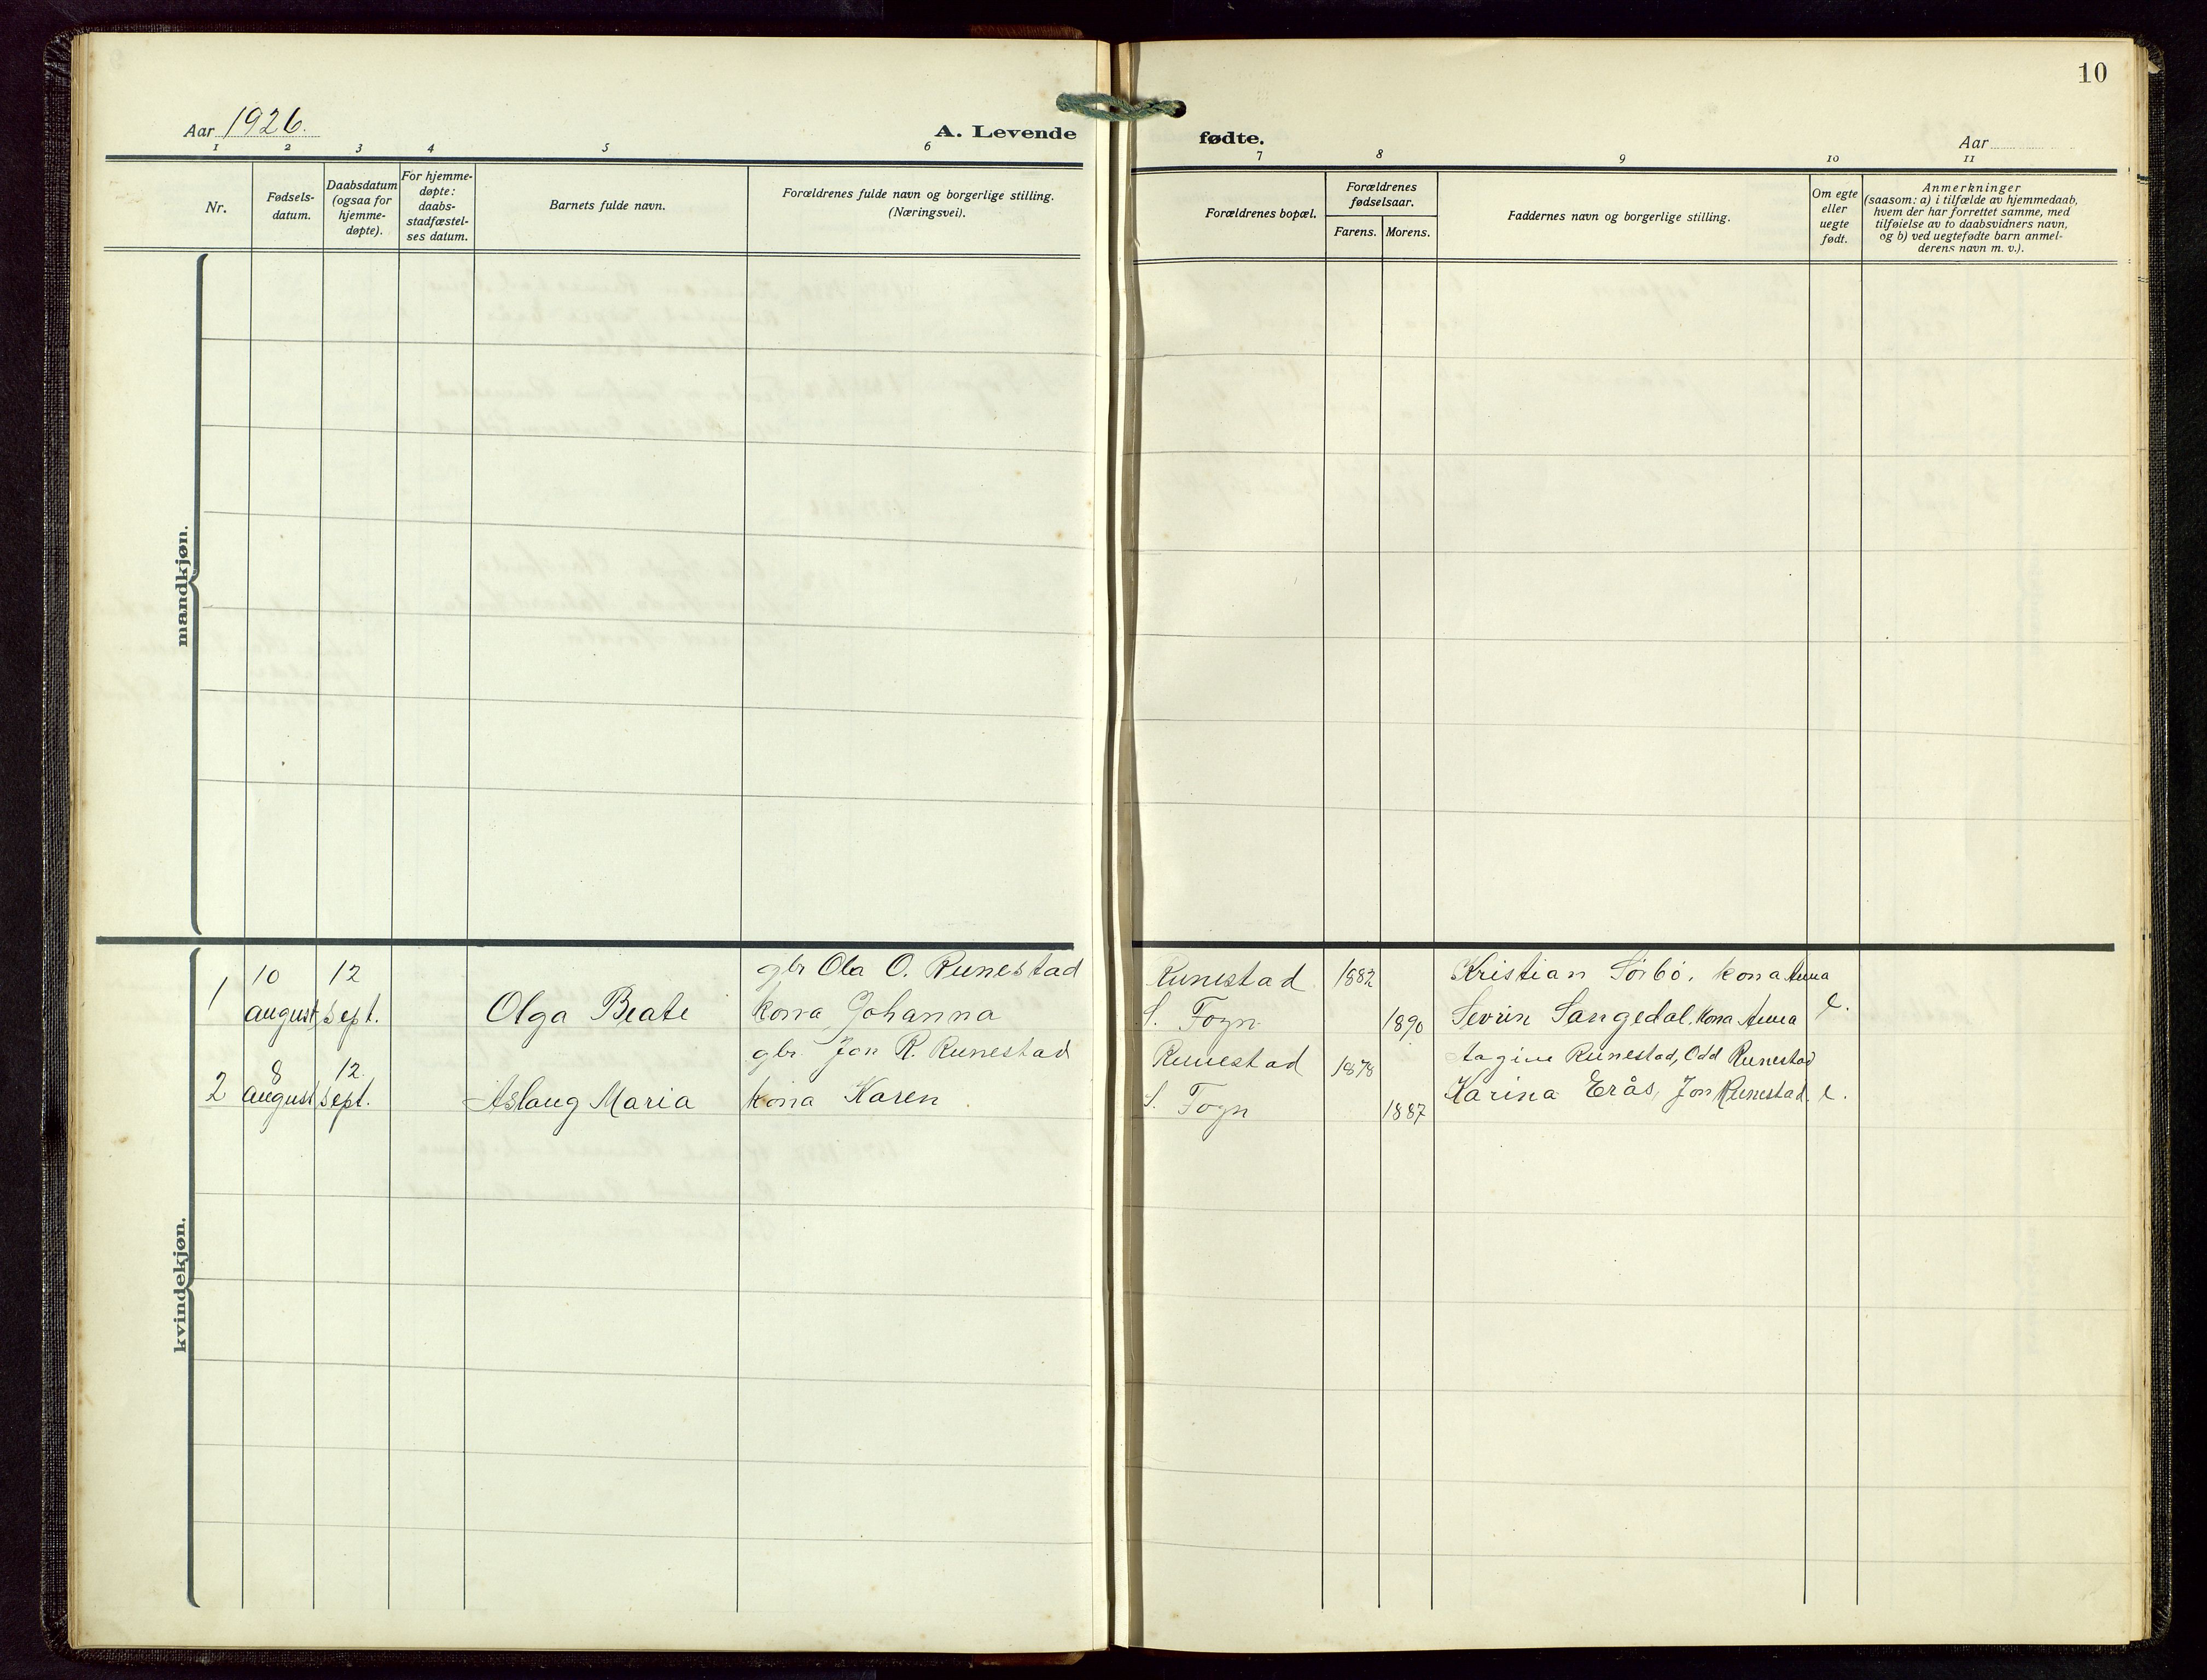 10
Aar 1926.
A. Levende
fødte.
Aar
1 2 3 4 5 6 7 8 9 10 11
Nr.
Fødsels-
datum.
Daabsdatum
(ogsaa for
hjemme-
døpte).
For hjemme-
døpte:
daabs-
stadfæstel-
ses datum.
Barnets fulde navn.
Forældrenes fulde navn og borgerlige stilling.
(Næringsvei).
Forældrenes bopæl.
Forældrenes
fødselsaar.
Farens. Morens.
Faddernes navn og borgerlige stilling.
Om egte
eller
uegte
født.
Anmerkninger
(saasom: a) i tilfælde av hjemmedaab,
hvem der har forrettet samme, med
tilføielse av to daabsvidners navn,
og b) ved uegtefødte barn anmel-
derens navn m. v.).
mandkjøn.
kvindekjøn.
10 12 gbr Ola O. Runestad Runestad 1882 Kristian Sörbö, kona Anna
1 august Sept. Olga Beate kona Johanna S. Fogn 1890 Sevrin Sangedal, Kona Anna e.
8 12. gbr. Jon R. Runestad Runestad 1878 Runestad, Odd Runestad
2 august Sept. Aslaug Maria kona Karen S. Fogn 1887 Karina Erås, Jon Runestad. e.